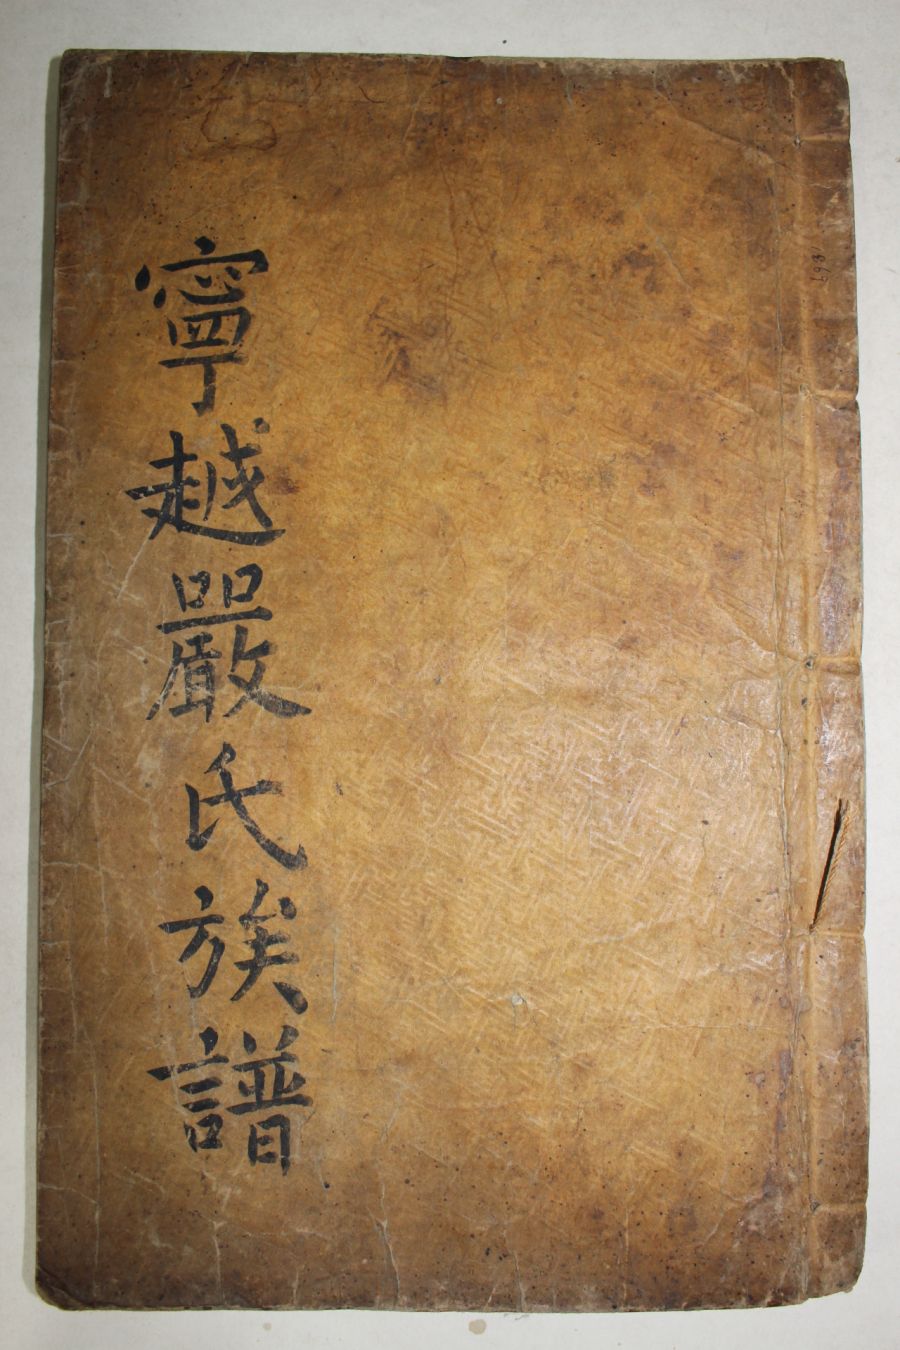 寧越嚴氏族譜